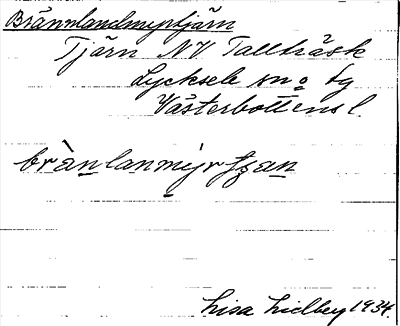 Brännlandmyrtjärn
Tjärn NV Tallträsk
Lycksele sn o tg
Västerbottens l.
bràn lanmýr tjan
Lisa Lidberg 1934.